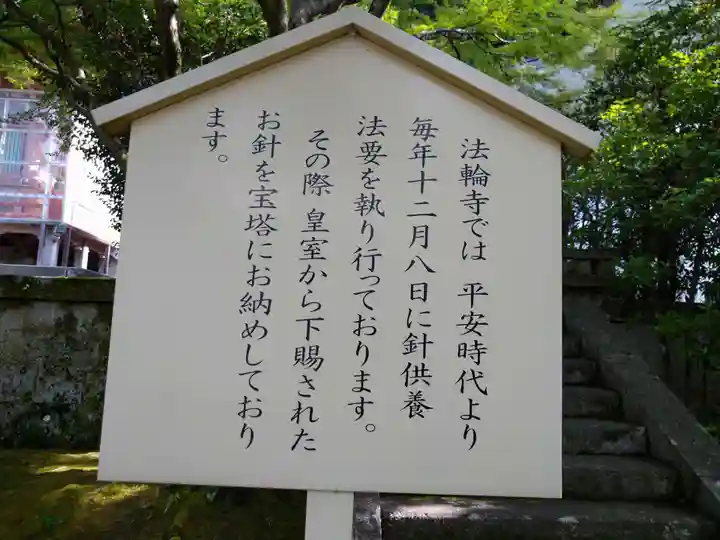 法輪寺では 平安時代より
毎年十二月八日に針供養
法要を執り行っております。
その際 皇室から下賜された
お針を宝塔にお納めしており
ます。